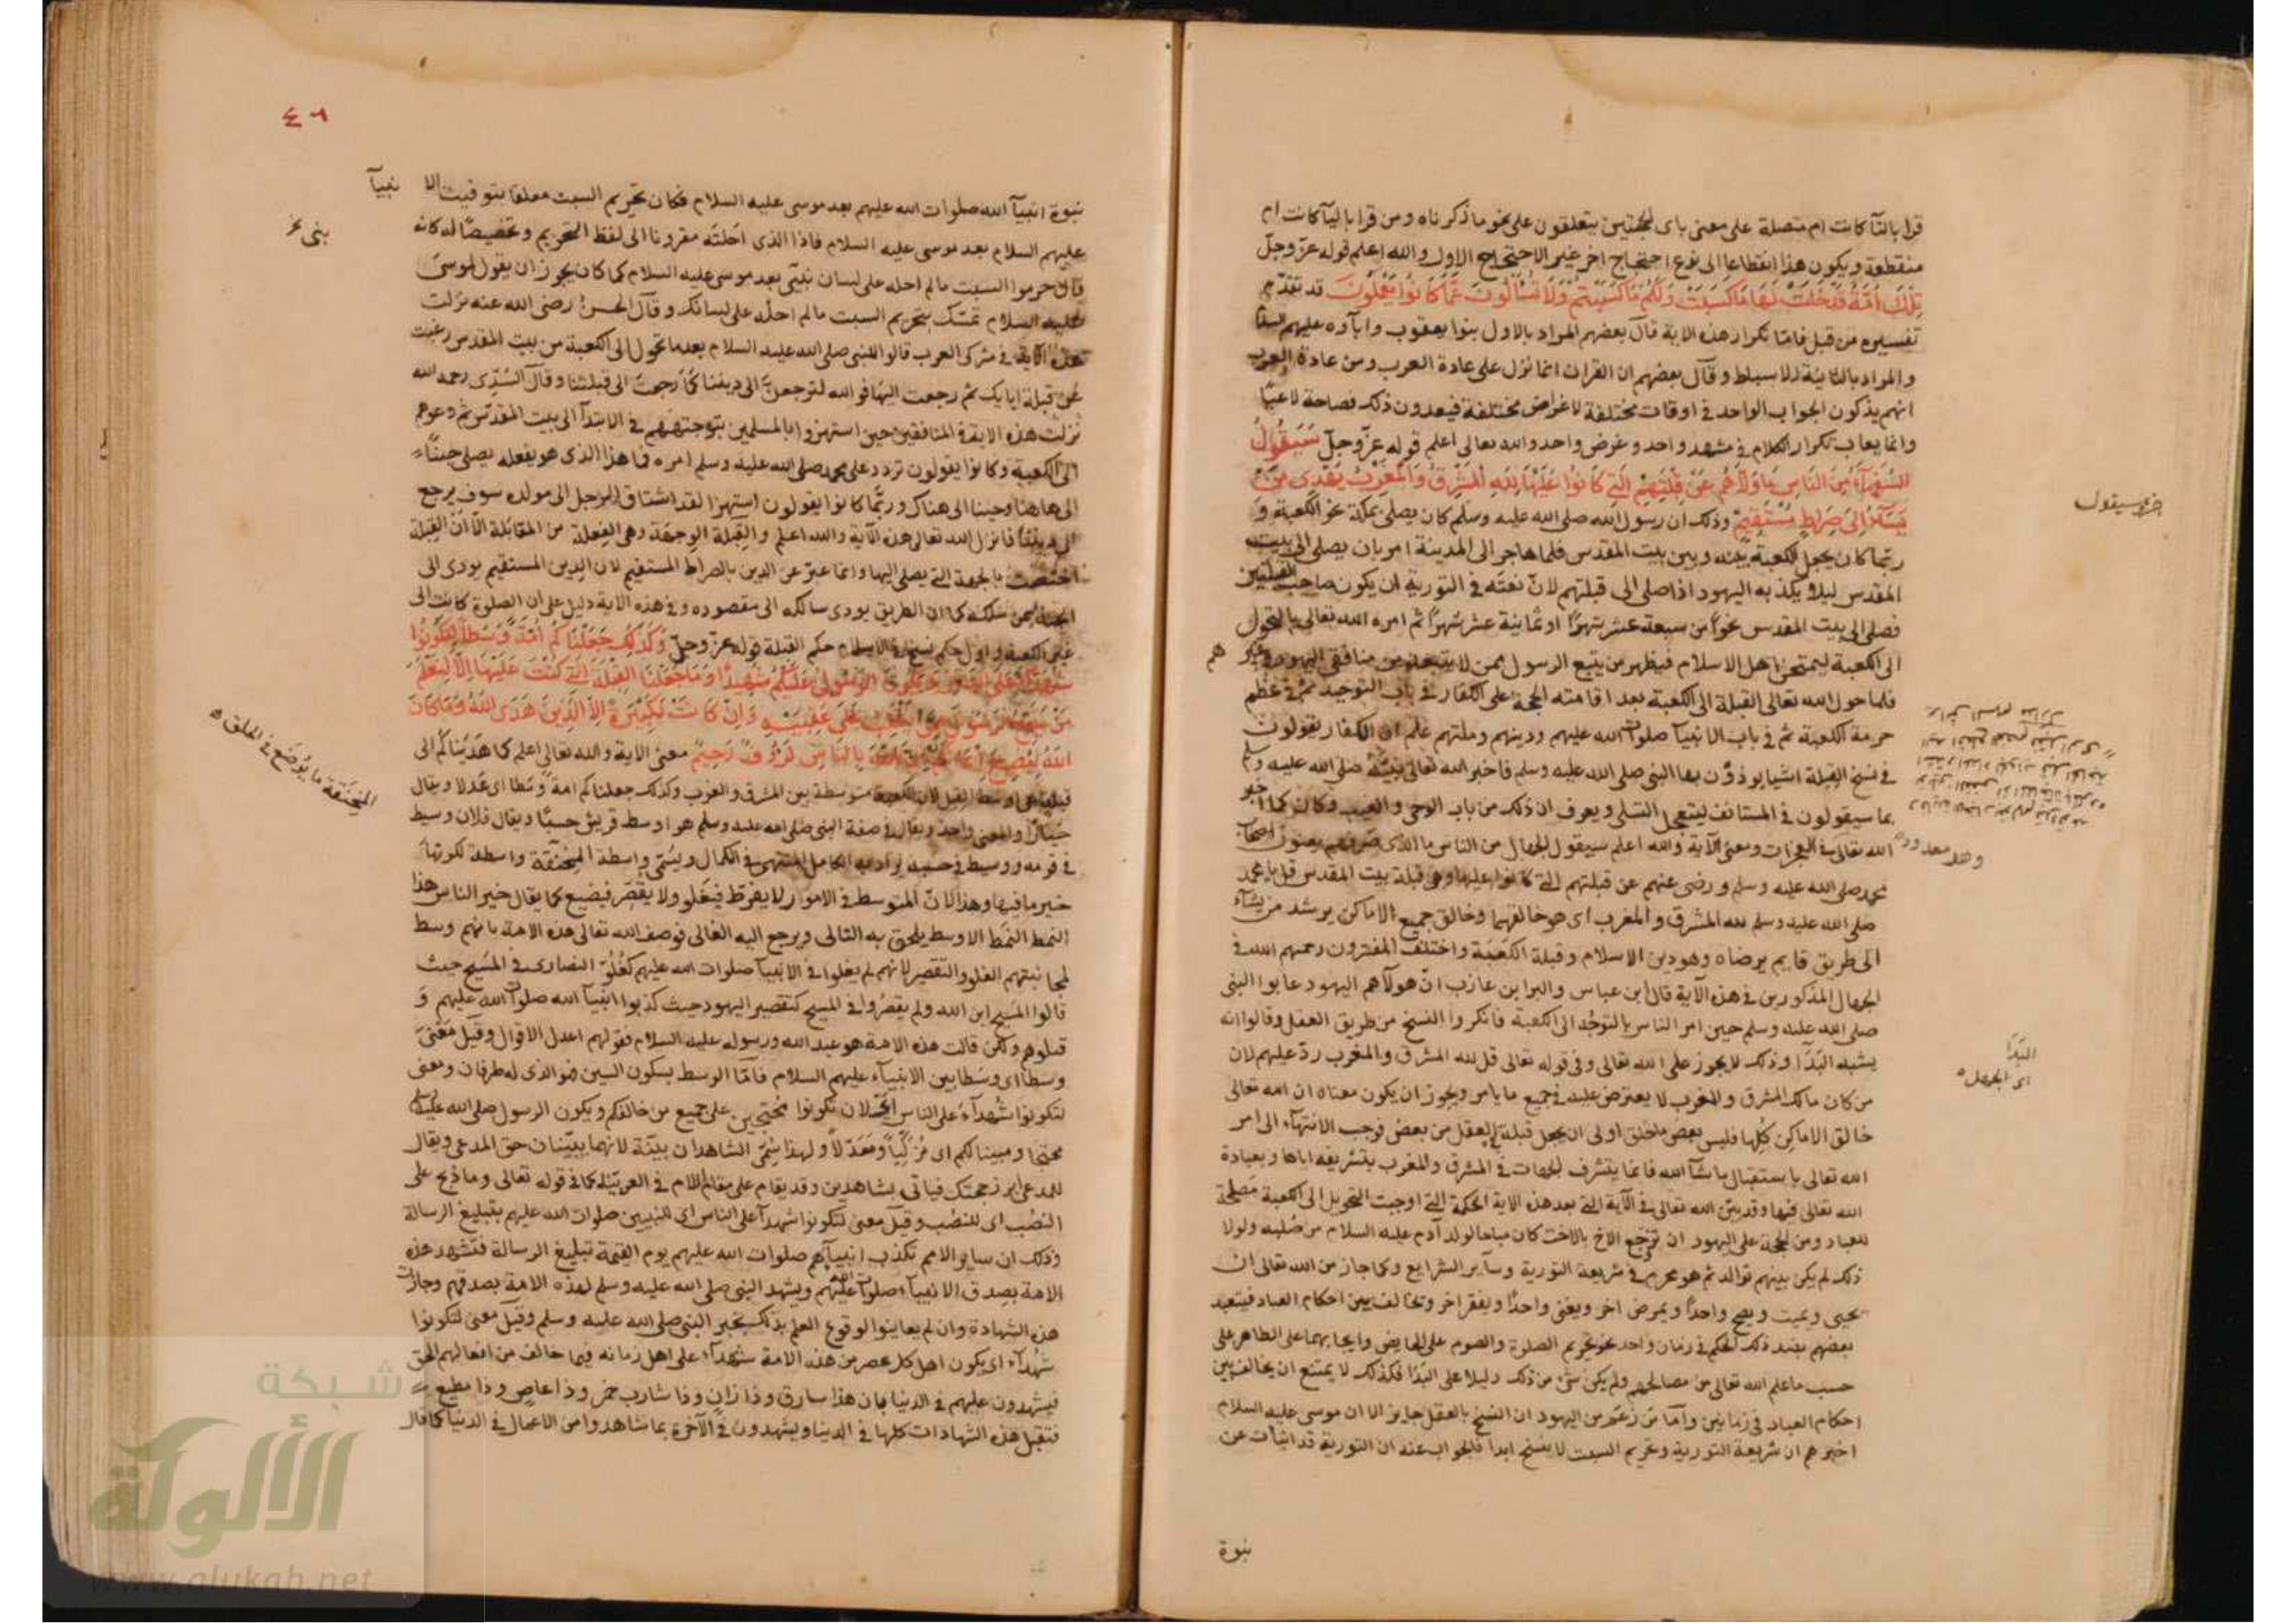 قرا بالتآ كانت ام متصلة على معنى باى الحجتين يتعلقون على نحو ما ذكرناه ومن قرا باليآ كانت ام
منقطعة ويكون هذا انقطاعا الى نوع احتجاج اخر غير الاحتجاج الاول والله اعلم قوله عزّ وجلّ
تِلْكَ اُمَّةٌ قَدْ خَلَتْ لَهَا مَا كَسَبَتْ وَلَكُم مَّا كَسَبْتُمْ وَلَا تُسْأَلُونَ عَمَّا كَانُوا يَعْمَلُونَ قد تقدّم
تفسيره من قبل فامّا تكرار هذه الاية قال بعضهم المراد بالاول بنوا يعقوب وابآوه عليهم السلام
والمراد بالثانية الاسباط وقال بعضهم ان القران انما نزل على عادة العرب ومن عادة العرب
انهم يذكرون الجواب الواحد في اوقات مختلفة لاغراض مختلفة فيعدون ذلك فصاحة لا عيبًا
وانما يعاب تكرار الكلام في مشهد واحد وغرض واحد والله تعالى اعلم قوله عزّ وجلّ سَيَقُولُ
السُّفَهَآءُ مِنَ النَّاسِ مَا وَلَّاهُمْ عَنْ قِبْلَتِهِمُ الَّتِي كَانُوا عَلَيْهَا قُلْ لِلَّهِ الْمَشْرِقُ وَالْمَغْرِبُ يَهْدِى مَنْ
يَشَآءُ اِلَى صِرَاطٍ مُّسْتَقِيمٍ وذلك ان رسول الله صلى الله عليه وسلم كان يصلى بمكة نحو الكعبة و
ربّما كان يجعل الكعبة بينه وبين بيت المقدس فلما هاجر الى المدينة امر بان يصلى الى بيت
المقدس ليلا يكذبه اليهود اذا صلى الى قبلتهم لانّ نعته في التورية ان يكون صاحب القبلتين
فصلى الى بيت المقدس نحوًا من سبعة عشر شهرًا او ثمانية عشر شهرًا ثم امره الله تعالى بالتحول
الى الكعبة ليمتحن اهل الاسلام فيظهر من يتبع الرسول ممن لا يتبعه من منافقى اليهود وغير هم
فلما حول الله تعالى القبلة الى الكعبة بعد اقامته الحجة على الكفار في باب التوحيد ثم في عظم
حرمة الكعبة ثم في باب الانبيآ صلوات الله عليهم ودينهم وملتهم علم ان الكفار يقولون
في نسخ القبلة اشيا يوذون بها النبى صلى الله عليه وسلم فاخبر الله تعالى نبيّه صلى الله عليه وسلم
بما سيقولون في المستانف ليتعجل التسلى ويعرف ان ذلك من باب الوحى والغيب وكان كما اخبر
الله تعالى ومعنى الآية والله اعلم سيقول الجهال من الناس ما الذى صرفهم يعنون اصحاب
محمد صلى الله عليه وسلم ورضى عنهم عن قبلتهم التي كانوا عليها وهى قبلة بيت المقدس قل يا محمد
صلى الله عليه وسلم لله المشرق والمغرب اى هو خالقهما وخالق جميع الاماكن يرشد من يشآء
الى طريق قايم يرضاه وهو دين الاسلام وقبلة الكعبة واختلف المفسرون رحمهم الله في
الجهال المذكورين في هذه الآية قال ابن عباس والبرا بن عازب انّ هولآ هم اليهود عابوا النبى
صلى الله عليه وسلم حين امر الناس بالتوجّه الى الكعبة فانكروا النسخ من طريق العقل وقالوا انه
يشبه البَدَا وذلك لا يجوز على الله تعالى وفى قوله تعالى قل لله المشرق والمغرب ردّ عليهم لان
من كان مالك المشرق والمغرب لا يعترض عليه في جميع ما يامر ويجوز ان يكون معناه ان الله تعالى
خالق الاماكن كلها فليس بعض ما خلق اولى ان يجعل قبلة في العقل من بعض فوجب الانتهآء الى امر
الله تعالى باستقبال ما شآ الله فانما يتشرف الجهات في المشرق والمغرب بتشريفه اياها وبعبادة
الله تعالى فيها وقد بيّن الله تعالى في الآية التي بعد هذه الاية الحكمة التي اوجبت التحويل الى الكعبة مصلحة
للعباد ومن الحجة على اليهود ان تزوّج الاخ بالاخت كان مباحا لولد آدم عليه السلام من صلبه ولولا
ذلك لم يكن بينهم توالد ثم هو محرم في شريعة التورية وساير الشرايع وكما جاز من الله تعالى ان
يحيى ويميت ويصح واحدًا ويمرض اخر ويغنى واحدًا ويفقر اخر وتخالف بين احكام العباد فيتعبد
بعضهم بضد ذلك الحكم في زمان واحد نحو تحريم الصلوة والصوم على الحايض وايجابهما على الطاهر على
حسب ما علم الله تعالى من مصالحهم ولم يكن شى من ذلك دليلا على البَدَا فكذلك لا يمتنع ان يخالف بين
احكام العباد في زمانين وامّا من زعم من اليهود ان النسخ بالعقل جايز الا ان موسى عليه السلام
اخبرهم ان شريعة التورية وتحريم السبت لا ينسخ ابدا فالجواب عنه ان التورية قد انبات عن
نبوة
سيقول
البَدَا
اى الجهل
٤٦
نبوة انبيآ الله صلوات الله عليهم بعد موسى عليه السلام فكان تحريم السبت معلقا بتوقيت الا نبيآ
عليهم السلام بعد موسى عليه السلام فاذا الذى احلّته مقرونا الى لفظ التحريم وتخصيصًا له كانه
قال حرموا السبت ما لم احله على لسان نبيّى بعد موسى عليه السلام كما كان يجوز ان يقول لموسى
عليه السلام تمسّك بتحريم السبت ما لم احلّه على لسانك وقال الحسن رضى الله عنه نزلت
هذه الآية في مشركى العرب قالوا للنبى صلى الله عليه السلام بعد ما تحول الى الكعبة من بيت المقدس رغبت
عن قبلة ابايك ثم رجعت اليها فوالله لترجعنّ الى ديننا كما رجعت الى قبلتنا وقال السّدّى رحمه الله
نزلت هذه الاية في المنافقين حين استهزوا بالمسلمين بتوجههم في الابتدآ الى بيت المقدس ثم رجوعهم
الى الكعبة وكانوا يقولون تردد على محمد صلى الله عليه وسلم امره فما هذا الذى هو يفعله يصلى حينًا
الى هاهنا وحينا الى هناك وربّما كانوا يقولون استهزا لقد اشتاق الرجل الى مولده سوف يرجع
الى ديننا فانزل الله تعالى هذه الآية والله اعلم والقبلة الوجهَة وهى الفعلة من المقابلة الّا انّ القبلة
اختصت بالجهة التي يصلى اليها وانما عبّر عن الدين بالصراط المستقيم لان الدين المستقيم يودى الى
الجنة لمن سلكه كما ان الطريق يودى سالكه الى مقصوده وفي هذه الاية دليل على ان الصلوة كانت الى
غير الكعبة واول حكم نسخ في الاسلام حكم القبلة قوله عزّ وجلّ وَكَذَلِكَ جَعَلْنَاكُمْ اُمَّةً وَسَطاً لِتَكُونُوا
شُهَدَآءَ عَلَى النَّاسِ وَيَكُونَ الرَّسُولُ عَلَيْكُمْ شَهِيدًا وَمَا جَعَلْنَا الْقِبْلَةَ الَّتِي كُنْتَ عَلَيْهَا اِلَّا لِنَعْلَمَ
مَنْ يَتَّبِعُ الرَّسُولَ مِمَّنْ يَنْقَلِبُ عَلَى عَقِبَيْهِ وَاِنْ كَانَتْ لَكَبِيرَةً اِلَّا عَلَى الَّذِينَ هَدَى اللَّهُ وَمَا كَانَ
اللَّهُ لِيُضِيعَ اِيمَانَكُمْ اِنَّ اللَّهَ بِالنَّاسِ لَرَؤُفٌ رَحِيمٌ معنى الاية والله تعالى اعلم كما هديناكم الى
قبلة هى اوسط القبل لان الكعبة متوسطة بين المشرق والمغرب وكذلك جعلناكم امة وسَطا اى عَدلا ويقال
خيارًا والمعنى واحد ويقال في صفة النبى صلى الله عليه وسلم هو اوسط قريش حسبًا ويقال فلان وسيط
في قومه ووسيط في حسبه يراد به الكامل المنتهى في الكمال ويسمّى واسطة المِخنَقَة واسطة لكونها
خير ما فيها وهذا لانّ المتوسط في الامور لا يفرط فيغلو ولا يقصّر فيضيع كما يقال خير الناس هذا
النمط النمَط الاوسط يلحق به التالى ويرجع اليه الغالى فوصف الله تعالى هذه الامة بانهم وسط
لمجانبتهم الغلو والتقصير لانهم لم يغلوا في الانبيآ صلوات الله عليهم كغُلوّ النصارى في المسيح حيث
قالوا المسيح ابن الله ولم يقصُروا في المسيح كتقصير اليهود حيث كذبوا انبيآ الله صلوات الله عليهم و
قتلوهم ولكن قالت هذه الامة هو عبد الله ورسوله عليه السلام فقولهم اعدل الاقوال وقيل معنى
وسطًا اى وسَطا بين الانبيآء عليهم السلام فامّا الوسط بسكون السين فهو الذى له طرفان ومعنى
لتكونوا شُهدآء على الناس اى لان تكونوا مُحتجين على جميع من خالفكم ويكون الرسول صلى الله عليه وسلم
محتجا ومبينا لكم اى مُزكّيًا ومُعَدّلًا ولهذا سُمّى الشاهدان بيّنة لانهما يبيّنان حق المدعى ويقال
للمدعى ابرز حجتك فياتى بشاهدين وقد يقام على مقام اللام في العربيّة كما في قوله تعالى وما ذبح على
النصُب اى للنصُب وقيل معنى لتكونوا شهدآ على الناس اى للنبيين صلوات الله عليهم بتبليغ الرسالة
وذلك ان ساير الامم تكذب انبيآهم صلوات الله عليهم يوم القيمة تبليغ الرسالة فتشهد هذه
الامة بصدق الانبيآء صلوات الله عليهم ويشهد النبى صلى الله عليه وسلم لهذه الامة بصدقهم وجازت
هذه الشهادة وان لم يعاينوا لوقوع العلم بذلك بخبر النبى صلى الله عليه وسلم وقيل معنى لتكونوا
شُهدآء اى يكون اهل كل عصر من هذه الامة شهدآء على اهل زمانه فيما خالف من افعالهم الحق
فيشهدون عليهم في الدنيا بان هذا سارق وذا زانٍ وذا شارب خمر وذا عاصٍ وذا مطيع
فتقبل هذه الشهادات كلها في الدنيا ويشهدون في الآخرة بما شاهدوا من الاعمال في الدنيا كما قال
المخنَقة ما يُوضَع في الحلق
شبكة
الألوكة
www.alukah.net